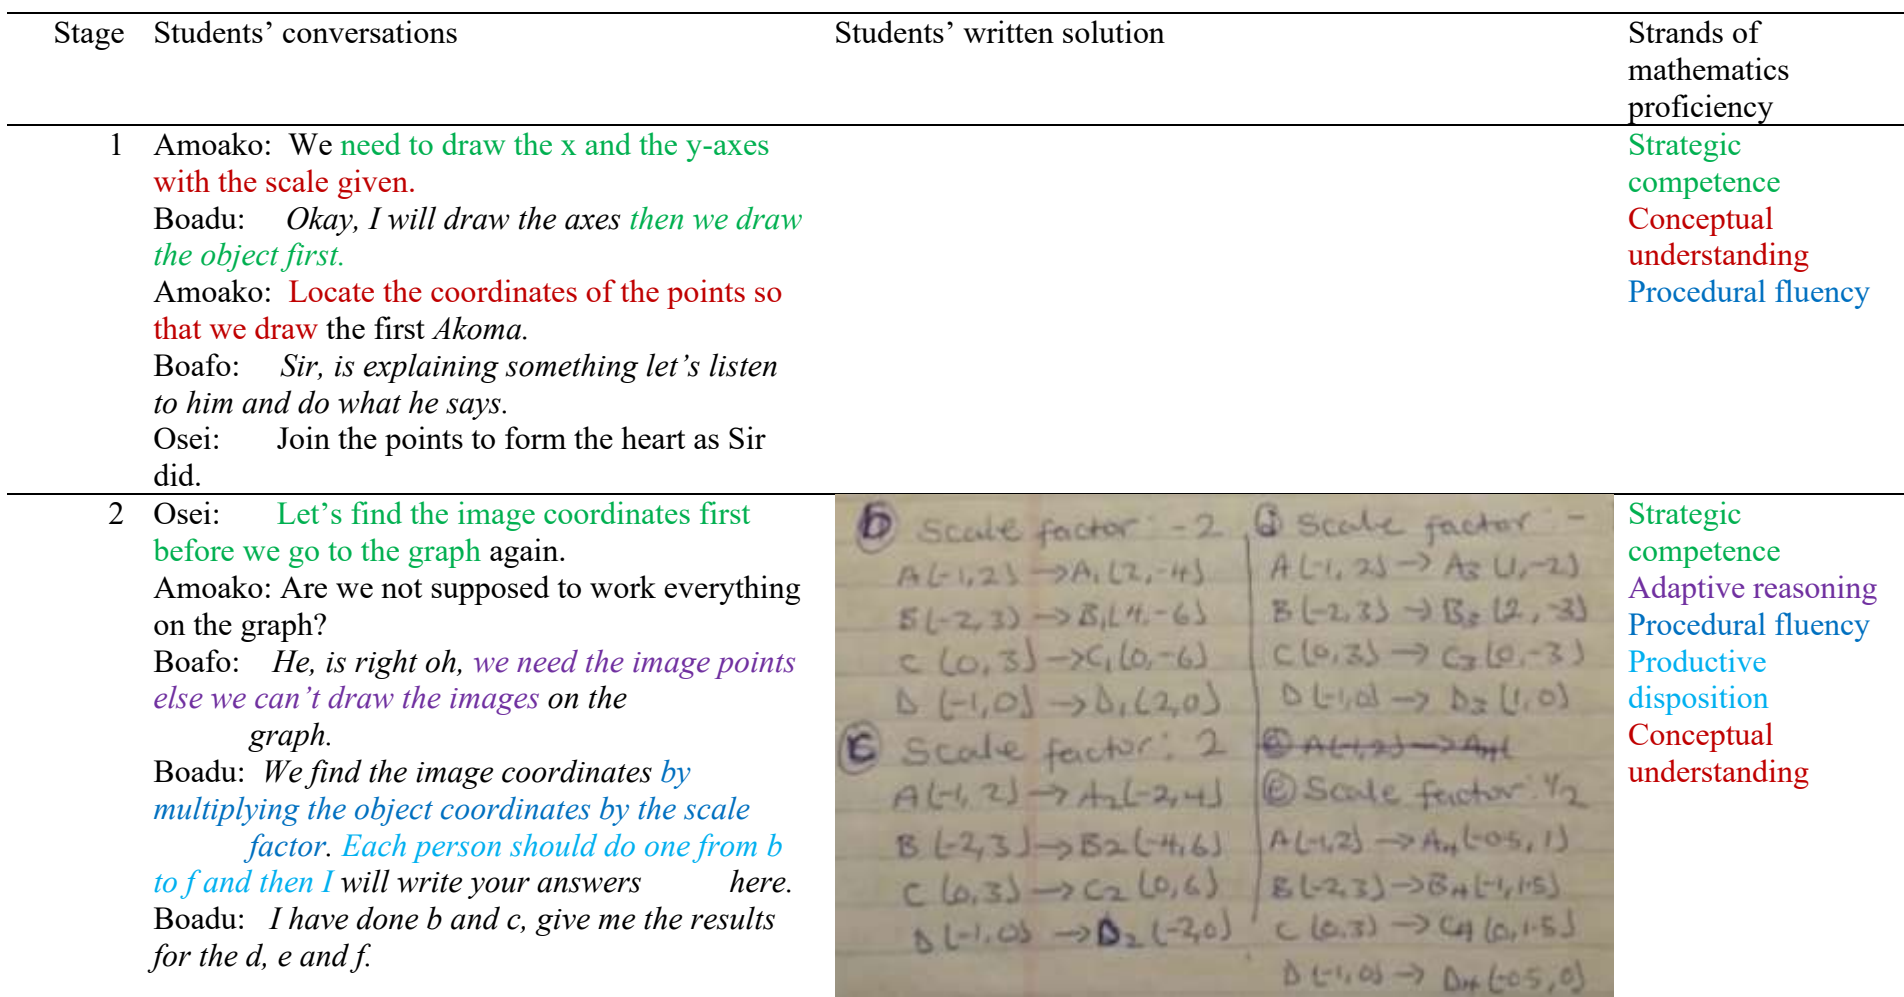 Stage Students’ conversations Students’ written solution Strands of
mathematics
proficiency
1 Amoako: We need to draw the x and the y-axes
with the scale given.
Boadu: Okay, I will draw the axes then we draw
the object first.
Amoako: Locate the coordinates of the points so
that we draw the first Akoma.
Boafo: Sir, is explaining something let’s listen
to him and do what he says.
Osei: Join the points to form the heart as Sir
did.
Strategic
competence
Conceptual
understanding
Procedural fluency
2 Osei: Let’s find the image coordinates first
before we go to the graph again.
Amoako: Are we not supposed to work everything
on the graph?
Boafo: He, is right oh, we need the image points
else we can’t draw the images on the
graph.
Boadu: We find the image coordinates by
multiplying the object coordinates by the scale
factor. Each person should do one from b
to f and then I will write your answers here.
Boadu: I have done b and c, give me the results
for the d, e and f.
b Scale factor: -2
A(-1,2) →A₁(2,-4)
B(-2,3) →B₁(4,-6)
C (0,3) →C₁(0,-6)
D (-1,0) →D₁(2,0)
c Scale factor: 2
A(-1,2) →A₂(-2,4)
B(-2,3) →B₂(-4,6)
C (0,3) →C₂(0,6)
D(-1,0) →D₂(-2,0)
d Scale factor: -
A(-1,2) → A₃(1,-2)
B(-2,3) → B₃(2,-3)
C(0,3) → C₃(0,-3)
D(-1,0) → D₃(1,0)
e A(-1,2) → A₄(
e Scale factor 1/2
A(-1,2) → A₄(-0.5,1)
B(-2,3) →B₄(-1,1.5)
C (0,3) → C₄(0,1.5)
D(-1,0) → D₄(-0.5,0)
Strategic
competence
Adaptive reasoning
Procedural fluency
Productive
disposition
Conceptual
understanding